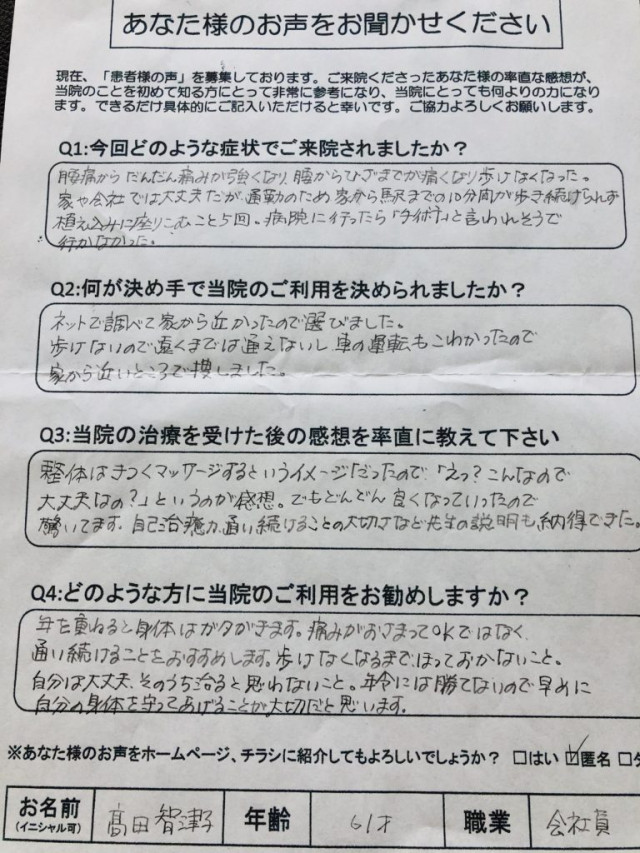 あなた様のお声をお聞かせください
現在、「患者様の声」を募集しております。ご来院くださったあなた様の率直な感想が、
当院のことを初めて知る方にとって非常に参考になり、当院にとっても何よりの力になり
ます。できるだけ具体的にご記入いただけると幸いです。ご協力よろしくお願いします。
Q1:今回どのような症状でご来院されましたか?
腰痛からだんだん痛みが強くなり、腰からひざまでが痛くなり歩けなくなった。
家や会社では大丈夫だが、通勤のため家から駅までの10分間が歩き続けられず
植え込みに座りこむこと5回。病院に行ったら「手術」と言われそうで
行かなかった。
Q2:何が決め手で当院のご利用を決められましたか?
ネットで調べて家から近かったので選びました。
歩けないので遠くまでは通えないし、車の運転もこわかったので
家から近いところで探しました。
Q3:当院の治療を受けた後の感想を率直に教えて下さい
整体はきつくマッサージするというイメージだったので、「えっ?こんなので
大丈夫なの?」というのが感想。でもどんどん良くなっていったので
驚いてます。自己治癒力、通い続けることの大切さなど先生の説明も納得できた。
Q4:どのような方に当院のご利用をお勧めしますか?
年を重ねると身体はガタがきます。痛みがおさまってOKではなく、
通い続けることをおすすめします。歩けなくなるまでほっておかないこと。
自分は大丈夫、そのうち治ると思わないこと。年令には勝てないので早めに
自分の身体を守ってあげることが大切だと思います。
※あなた様のお声をホームページ、チラシに紹介してもよろしいでしょうか? □はい ☑匿名 □
お名前 (イニシャル可) 高田智津子 年齢 61才 職業 会社員